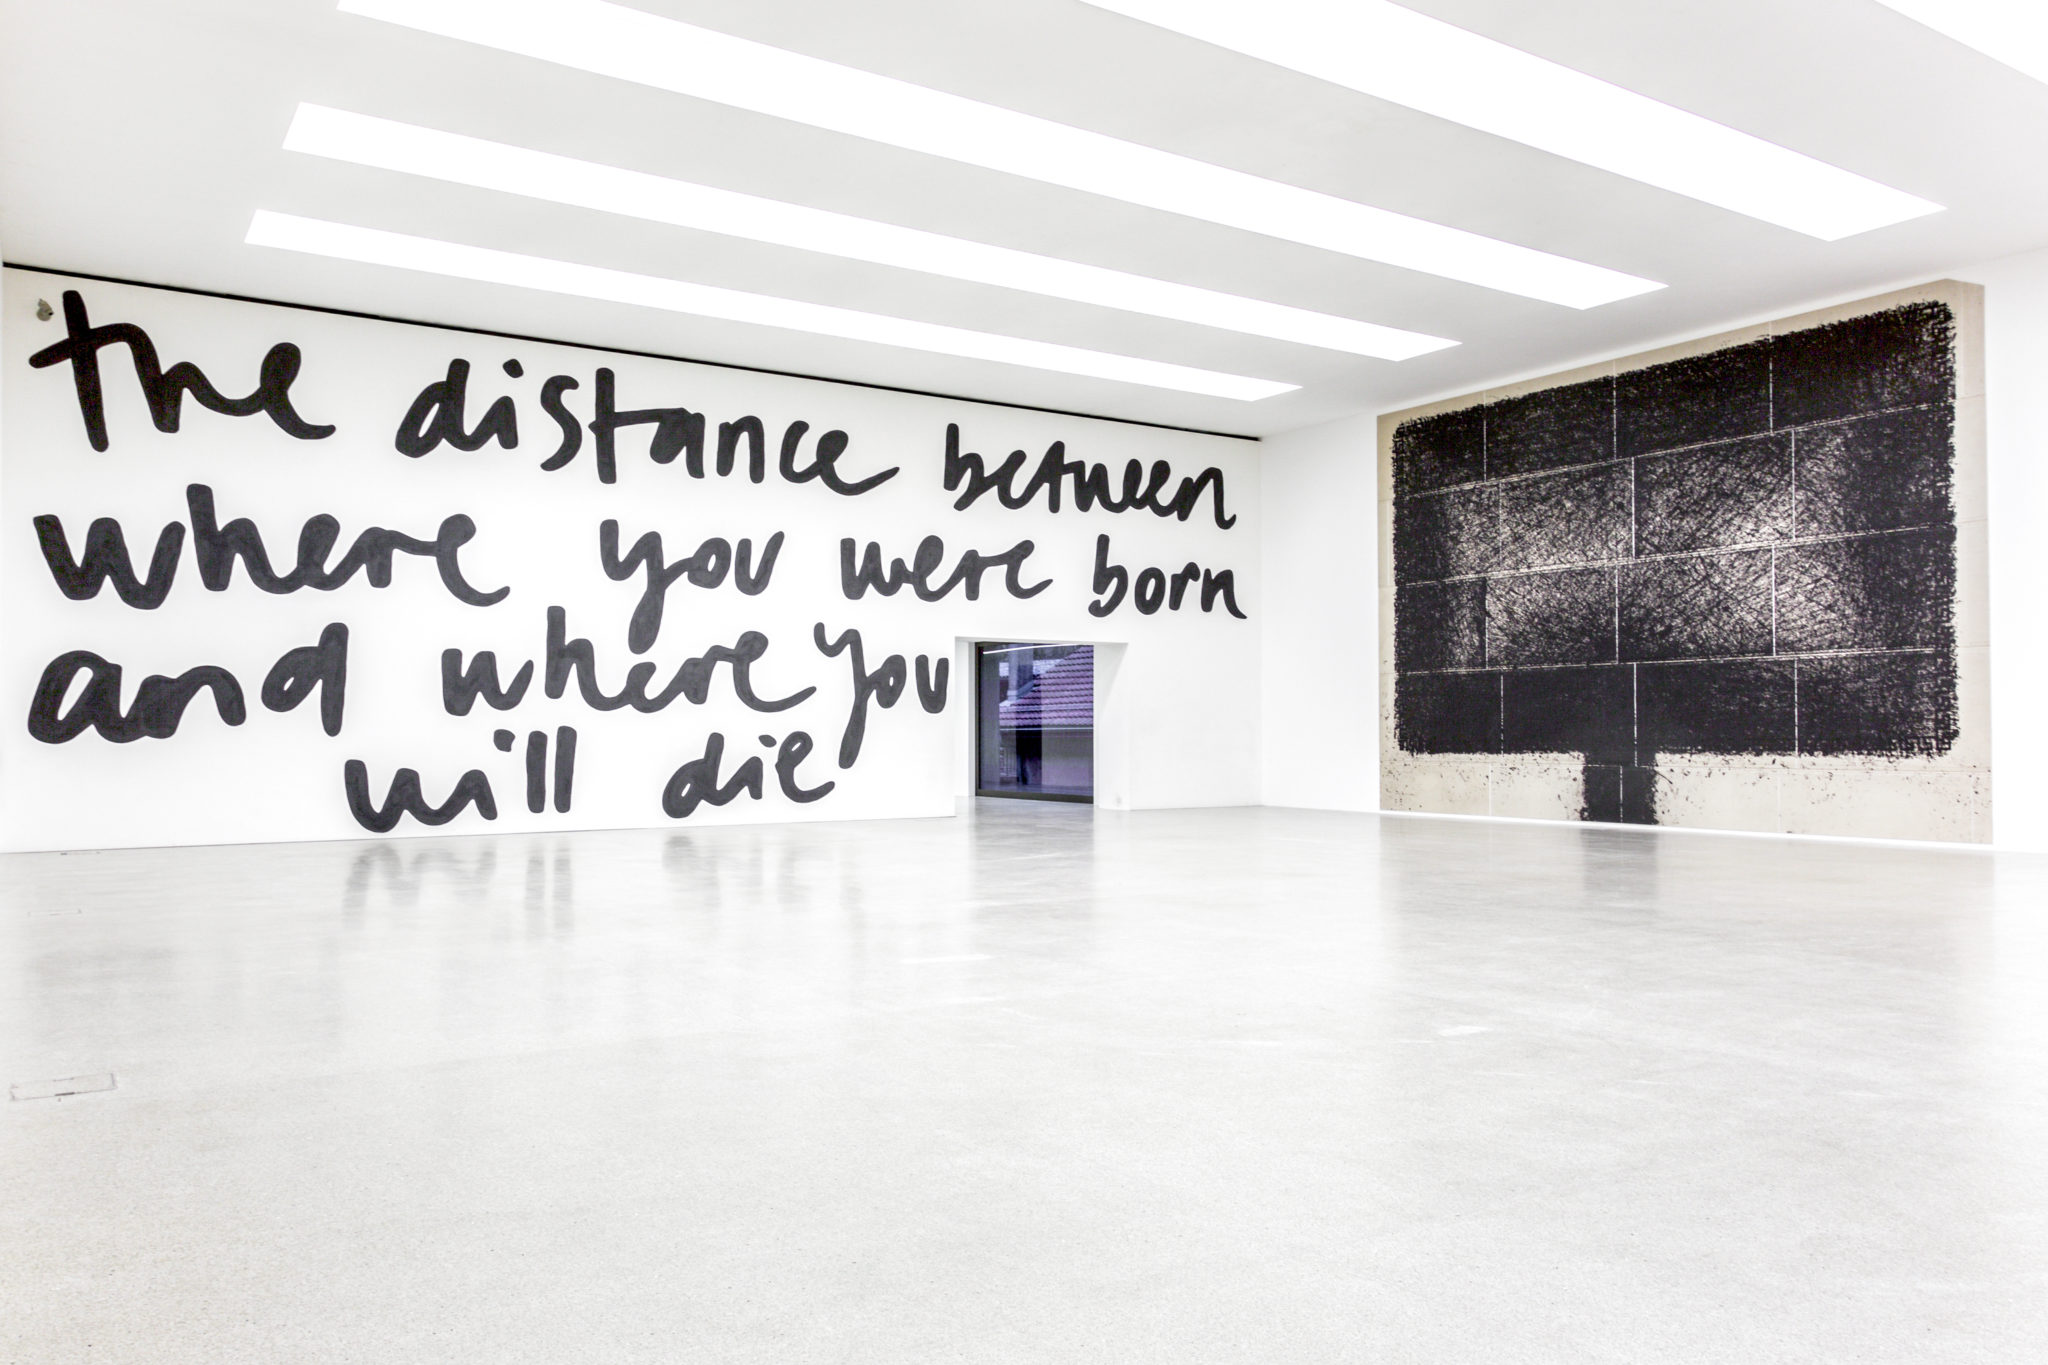 the distance between
where you were born
and where you
will die